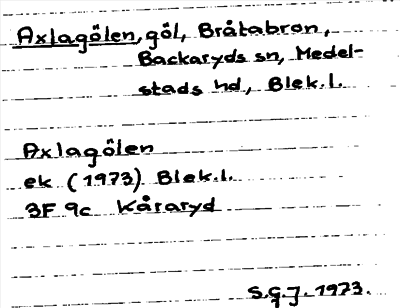 Axlagölen, göl, Bråtabron,
Backaryds sn, Medel-
stads hd, Blek.l.
Axlagölen
ek (1973) Blek.l.
3F 9c Kåraryd
S.G.J. 1973.